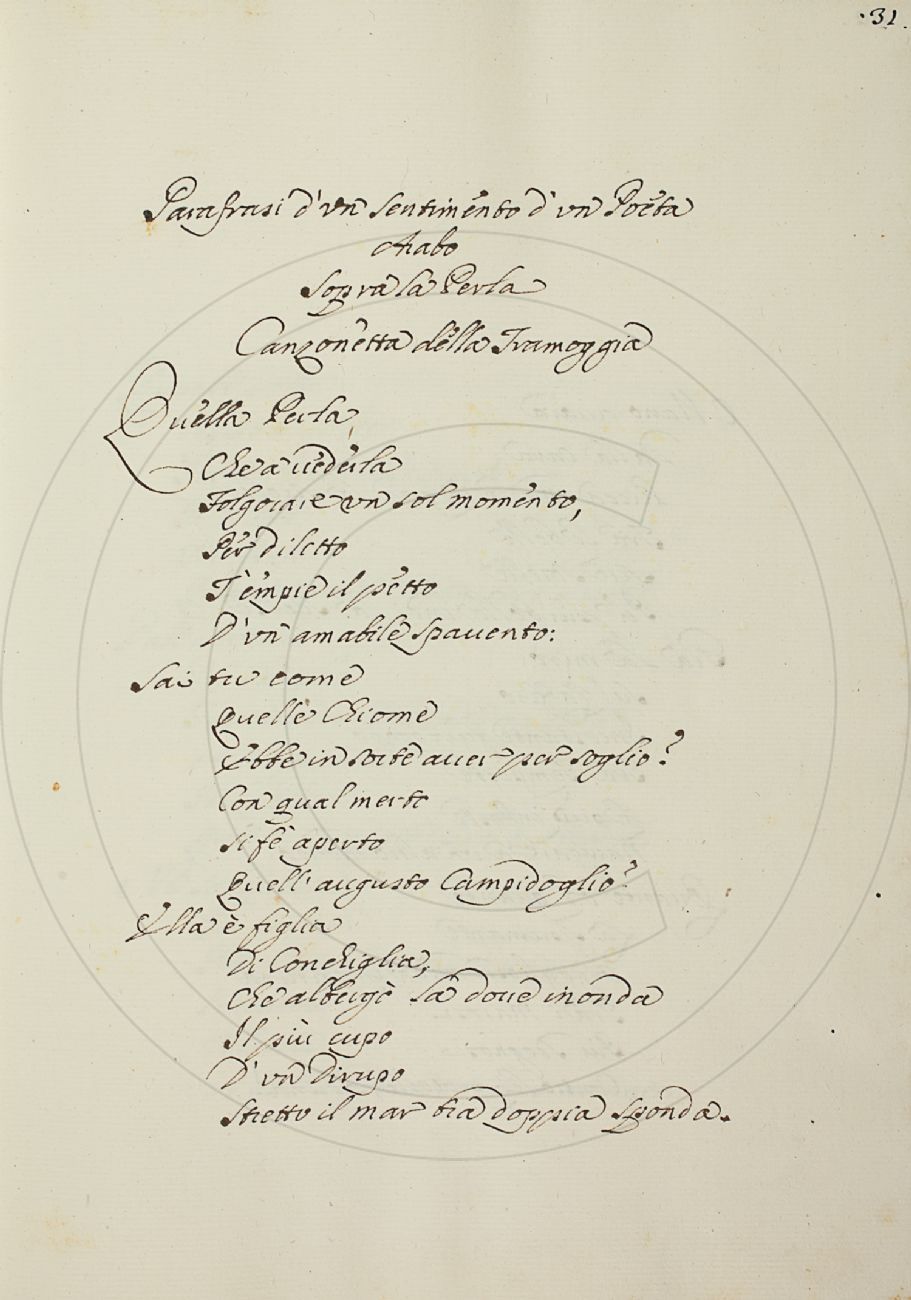 .31.
Parafrasi d'vn sentimento d'vn Poeta
Arabo
sopra la Perla
Canzonetta della Tramoggia
Quella Perla,
Che a vederla
Folgorare vn sol momento,
Per diletto
T'empie il petto
D'vn amabile spauento:
Sai tu come
Quelle Chiome
Ebbe in sorte auer per soglio?
Con qual merto
Si fè aperto
Quell'augusto Campidoglio?
Ella è figlia
Di Conchiglia,
Che albergò là doue inonda
Il più cupo
D'vn Dirupo
Stretto il mar tra doppia sponda.